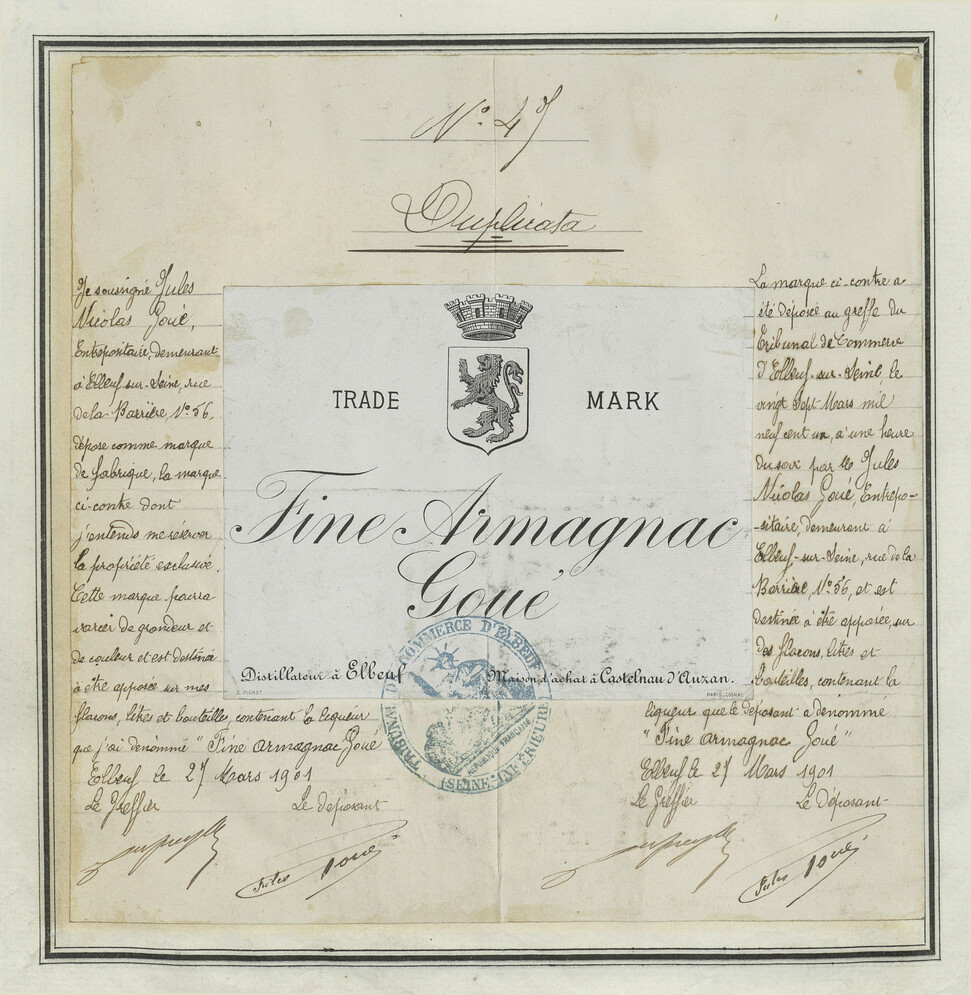 N° 47
Duplicata
Je soussigné Jules
Nicolas Goué,
Entrepositaire, demeurant
à Elbeuf-sur-Seine, rue
de la Barrière, N° 56,
dépose comme marque
de fabrique, la marque
ci-contre dont
j'entends me réserver
la propriété exclusive.
Cette marque pourra
varier de grandeur et
de couleur et est destinée
à être apposée sur mes
flacons, litres et bouteilles, contenant la liqueur
que j'ai denommé "Fine Armagnac Goué"
Elbeuf le 27 Mars 1901
Le Greffier Le déposant
Jules Goué
TRADE MARK
Fine Armagnac
Goué
Distillateur à Elbeuf Maison d'achat à Castelnau d'Auzan.
C. PICHOT PARIS-COGNAC
TRIBUNAL DE COMMERCE D'ELBEUF
RÉPUBLIQUE FRANÇAISE
(SEINE-INFÉRIEURE)
La marque ci-contre a
été déposée au greffe du
Tribunal de Commerce
d'Elbeuf-sur-Seine, le
vingt Sept Mars mil
neuf cent un, à une heure
du soir par Mr Jules
Nicolas Goué, Entrepo-
-sitaire, demeurant à
Elbeuf-sur-Seine, rue de la
Barrière, N° 56, et est
destinée à être apposée, sur
des flacons, litres et
bouteilles, contenant la
liqueur que le déposant a dénommé
"Fine Armagnac Goué"
Elbeuf le 27 Mars 1901
Le Greffier Le déposant
Jules Goué